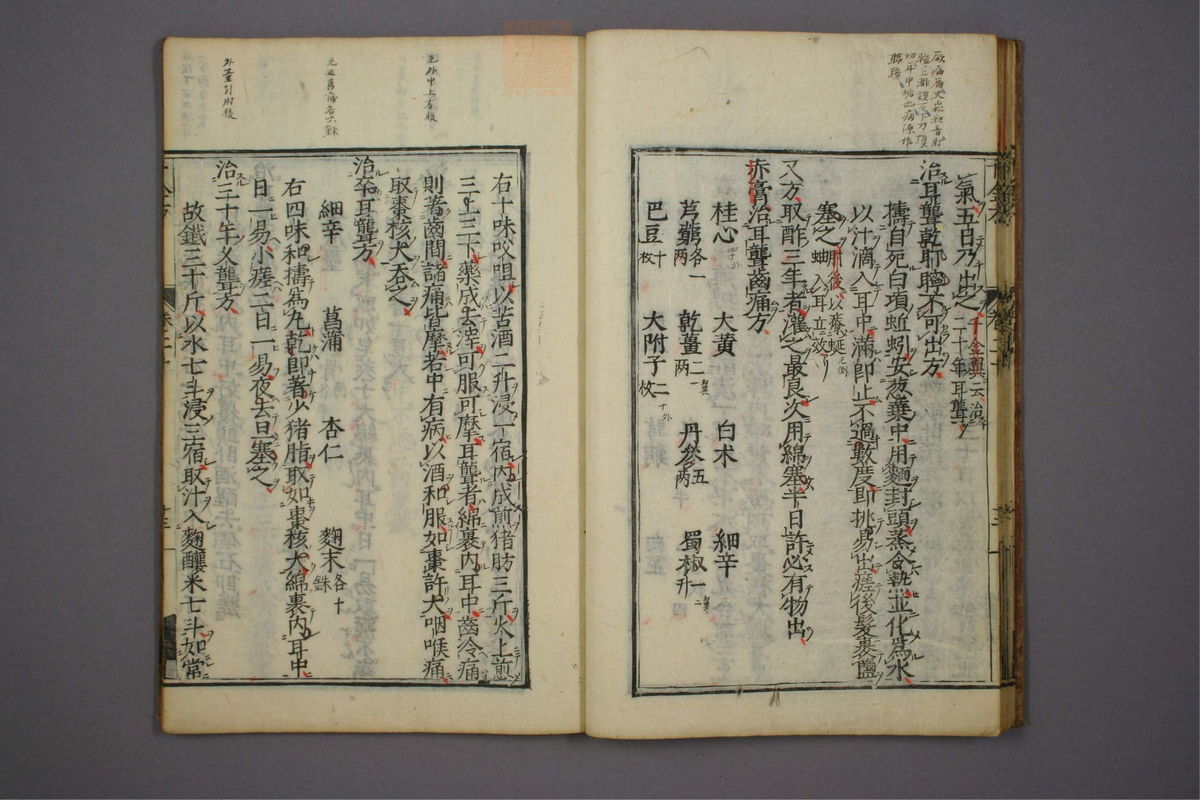 氣五日乃出之千金翼云治二十年耳聾
治耳聾乾耵聹不可出方
擣自死白項蚯蚓安葱葉中用麵封頭蒸令熟並化爲水
以汁滴入耳中滿即止不過數度即挑易出瘥後髮裹鹽
塞之肘後以療蚰蜒入耳立效
又方取酢三年者灌之最良次用綿塞半日許必有物出
赤膏治耳聾齒痛方
桂心 大黃 白朮 細辛
芎藭各一兩 乾薑二兩 丹參五兩 蜀椒一升
巴豆十枚 大附子二枚
右十味㕮咀以苦酒二升浸一宿內成煎猪肪三斤火上煎
三上三下藥成去滓可服可摩耳聾者綿裹內耳中齒冷痛
則著齒間諸痛皆摩若中有病以酒和服如棗許大咽喉痛
取棗核大吞之
治卒耳聾方
細辛 菖蒲 杏仁 麴末各十銖
右四味和擣爲丸乾即著少猪脂取如棗核大綿裹內耳中
日一易小瘥二日一易夜去旦塞之
治三十年久聾方
故鐵三十斤以水七斗浸三宿取汁入麴釀米七斗如常